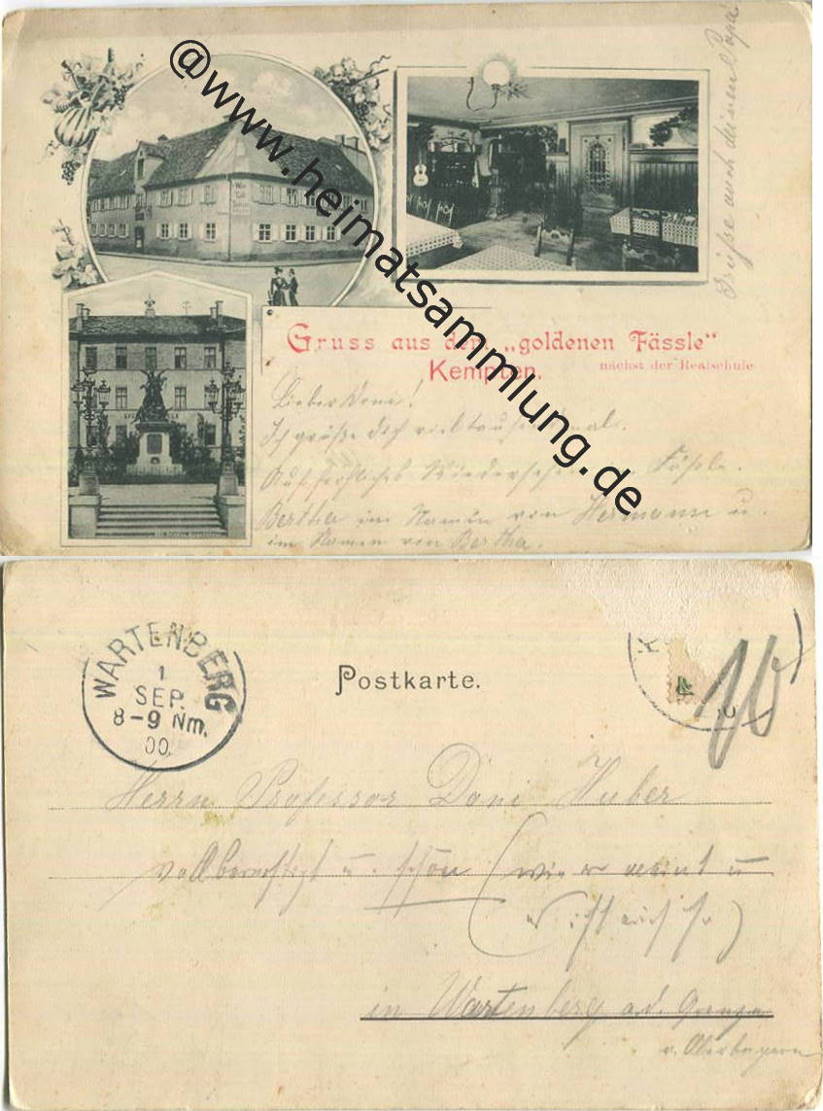 Grüße auch deinen Papa
@www.heimatsammlung.de
Gruss aus dem „goldenen Fässle“
Kempten. nächst der Realschule
Lieber Doni!
Ich grüße dich vieltausendmal.
Auf fröhliches Wiedersehen Fäßle.
Bertha im Namen von Hermann u.
im Namen von Bertha.
WARTENBERG
1
SEP.
8-9 Nm.
00.
Postkarte.
K
10
Herrn Professor Doni Huber
u. schön (wie er meint u
in Wartenberg a.d.
v. Oberbayern